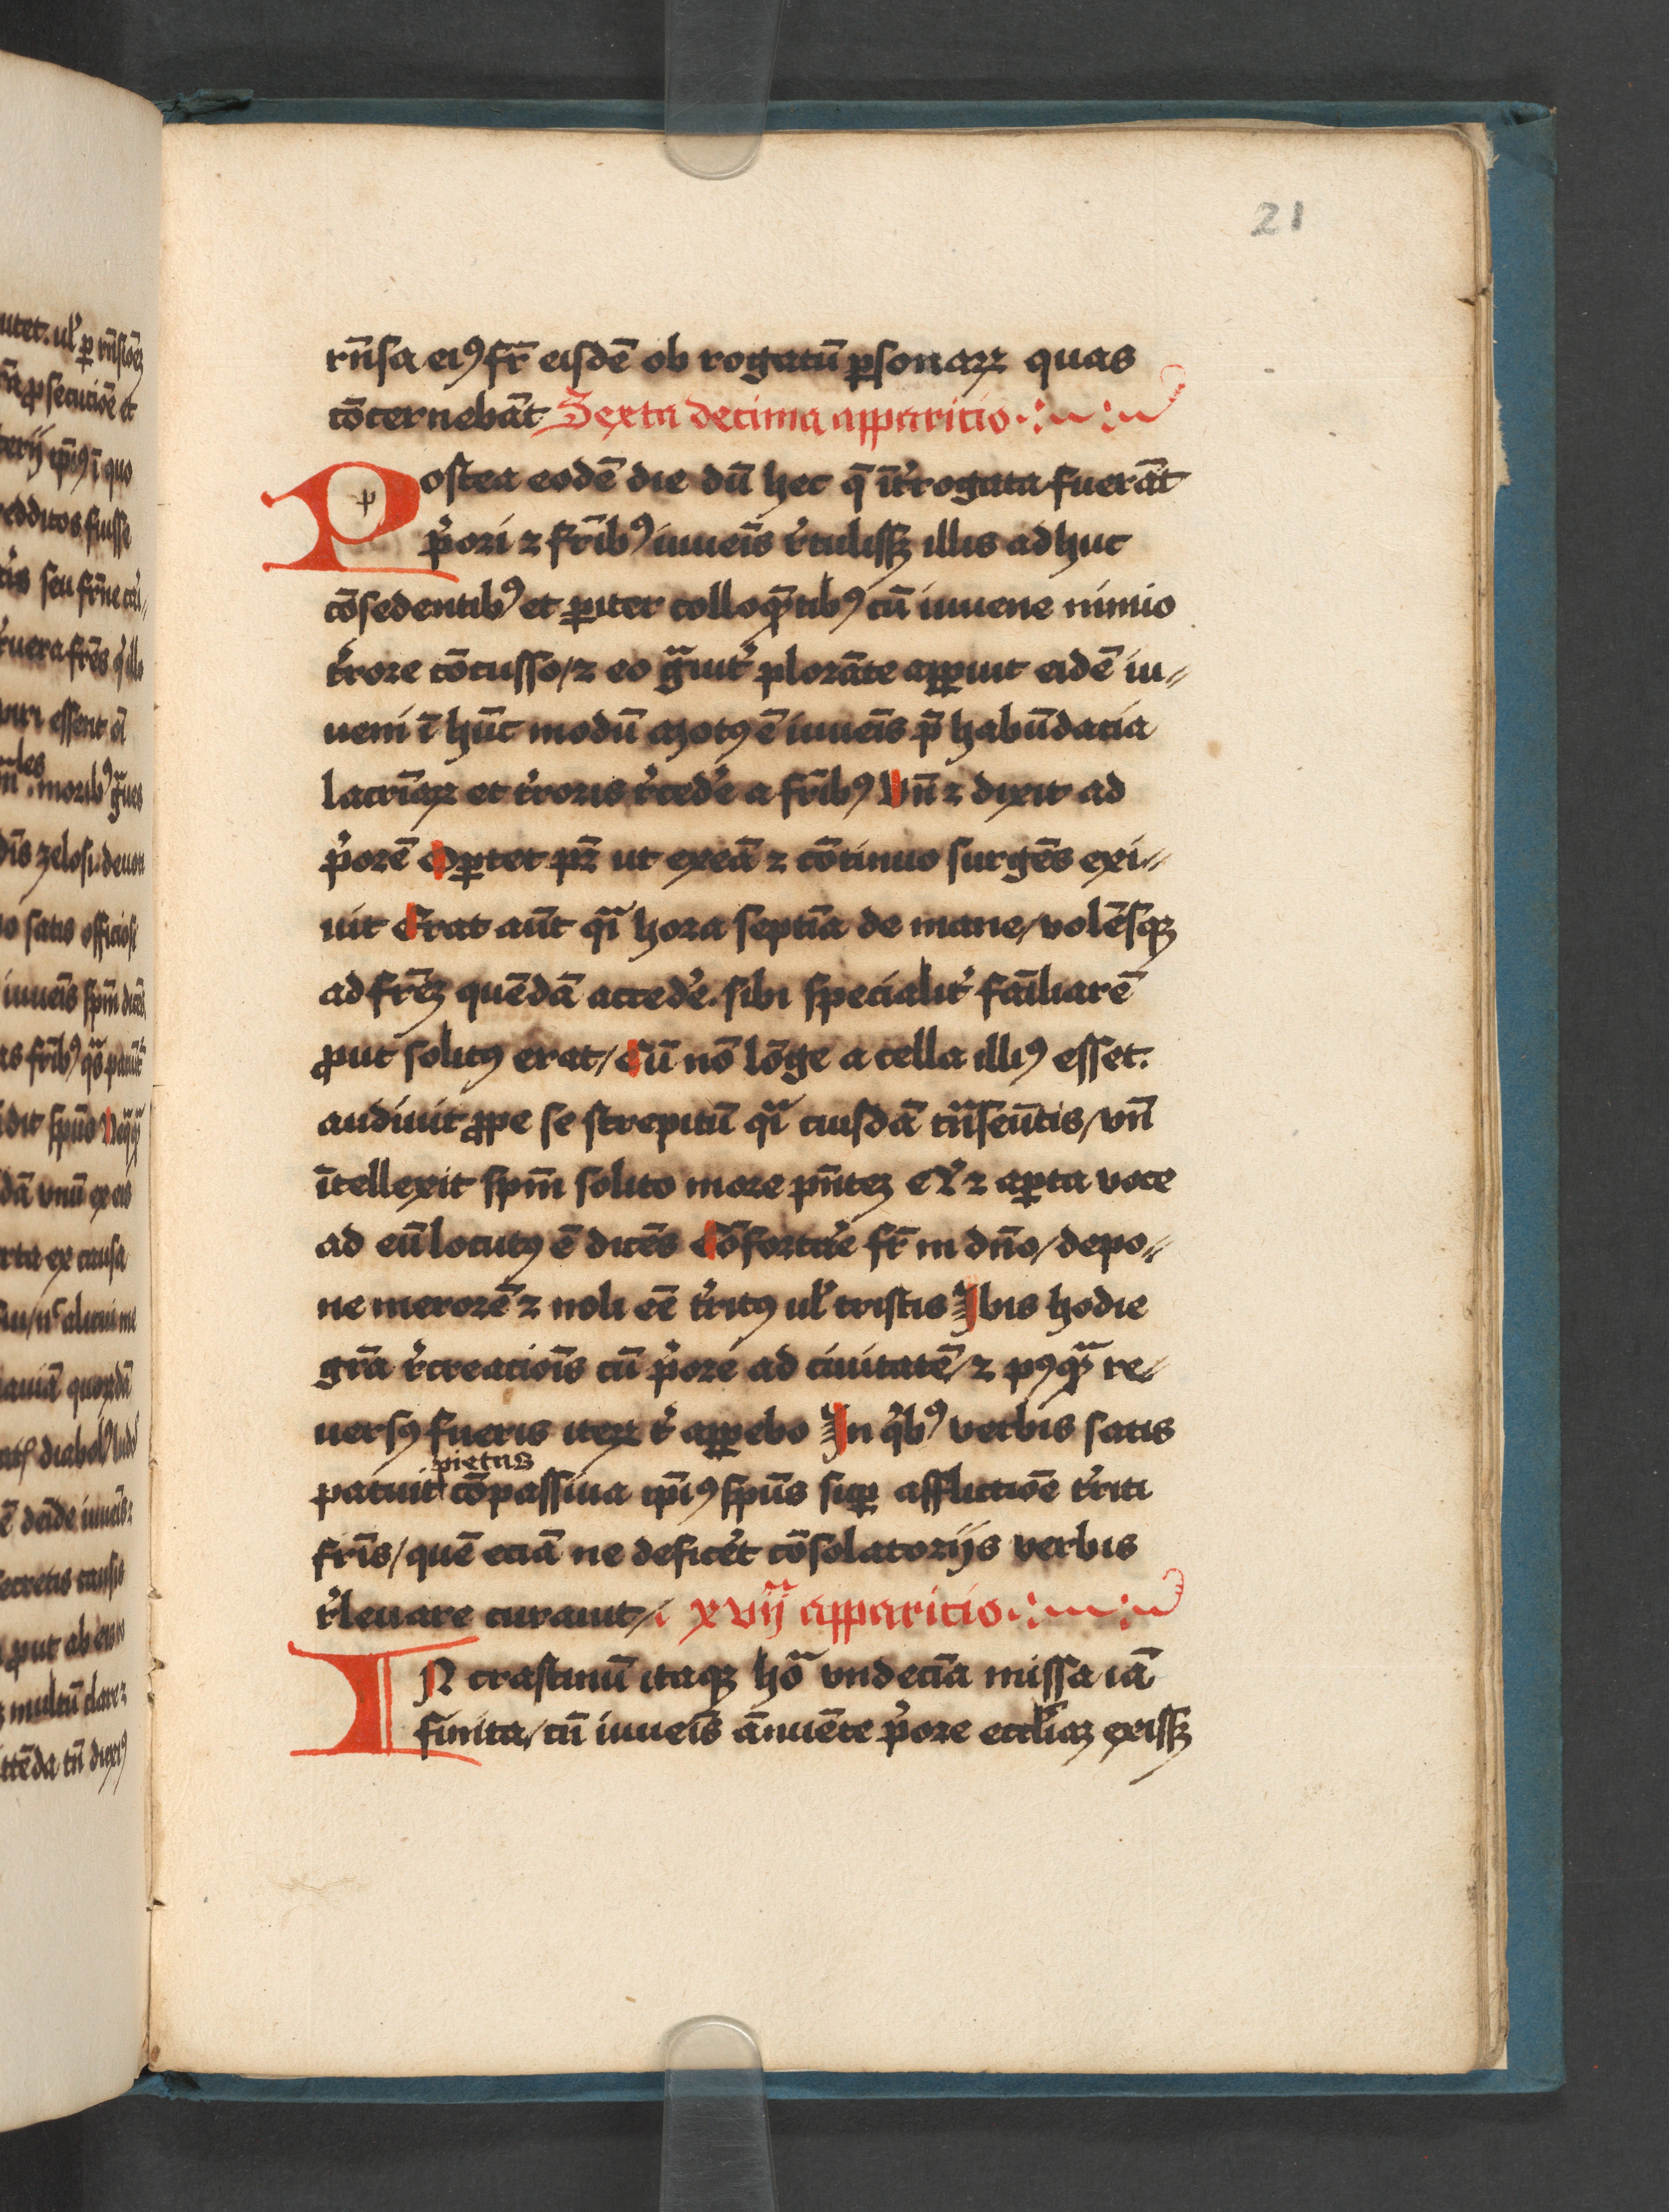 21
rn̄sa eiꝰ fr̄ eisdē ob rogatū ꝑsonaꝝ quas
cōcernebāt Sexta decima apparicio
Postea eodē die dū hec q̄ īt̓rogata fuerāt
p̓ori ⁊ fr̄ibꝰ iuueīs r̓tulissꝫ illis adhuc
cōsedentibꝰ et ꝑiter colloq̄ntibꝰ cū iuuene nimio
t̓rore cōcusso / ⁊ eo gͣuit̓ plorāte apꝑuit eidē iu⸗
ueni ī hūc modū Motꝰ ē iuueīs p̄ habūdācia
lacrīaꝝ et t̓roris r̓ced̓e a fr̄ibꝰ Vn̄ ⁊ dixit ad
p̓orē Oꝑtet pr̄ ut exeā ⁊ cōtinuo surgēs exi⸗
uit Erat aūt qͣi hora septīa de mane / volēsqꝫ
ad fr̄eꝫ quēdā acced̓e. sibi specialit̓ fāiliarē
ꝓut solitꝰ erat / Cū nō lōge a cella illiꝰ esset.
audiuit ꝓpe se strepitū qͣi cuiusdā trͣnseūtis / vn̄
ītellexit spm̄ solito more pn̄teꝫ Et ⁊ aꝑta voce
ad eū locutꝰ ē dicēs Cōfortar̓e fr̄ in dn̄o / depo⸗
ne merorē ⁊ noli eē t̓ritꝰ ul̓ tristis Ibis hodie
gr̄a r̓creaciōis cū p̓ore ad ciuitatē / ⁊ pꝰqͣ re⸗
uersꝰ fueris iteꝝ t̓ apꝑebo In q̓bꝰ verbis satis
pietas
patuit cōpassiua ip̄iꝰ spūs suꝑ afflictiōe t̓riti
fr̄is / quē eciā ne defic̓et cōsolatorijs verbis
r̓leuare curauit / xvijͣ apparicio
IN crastinū itaqꝫ hoͣ vndecīa missa iā
finita / cū iuueīs ānuēte p̓ore eccl̓iaꝫ exissꝫ